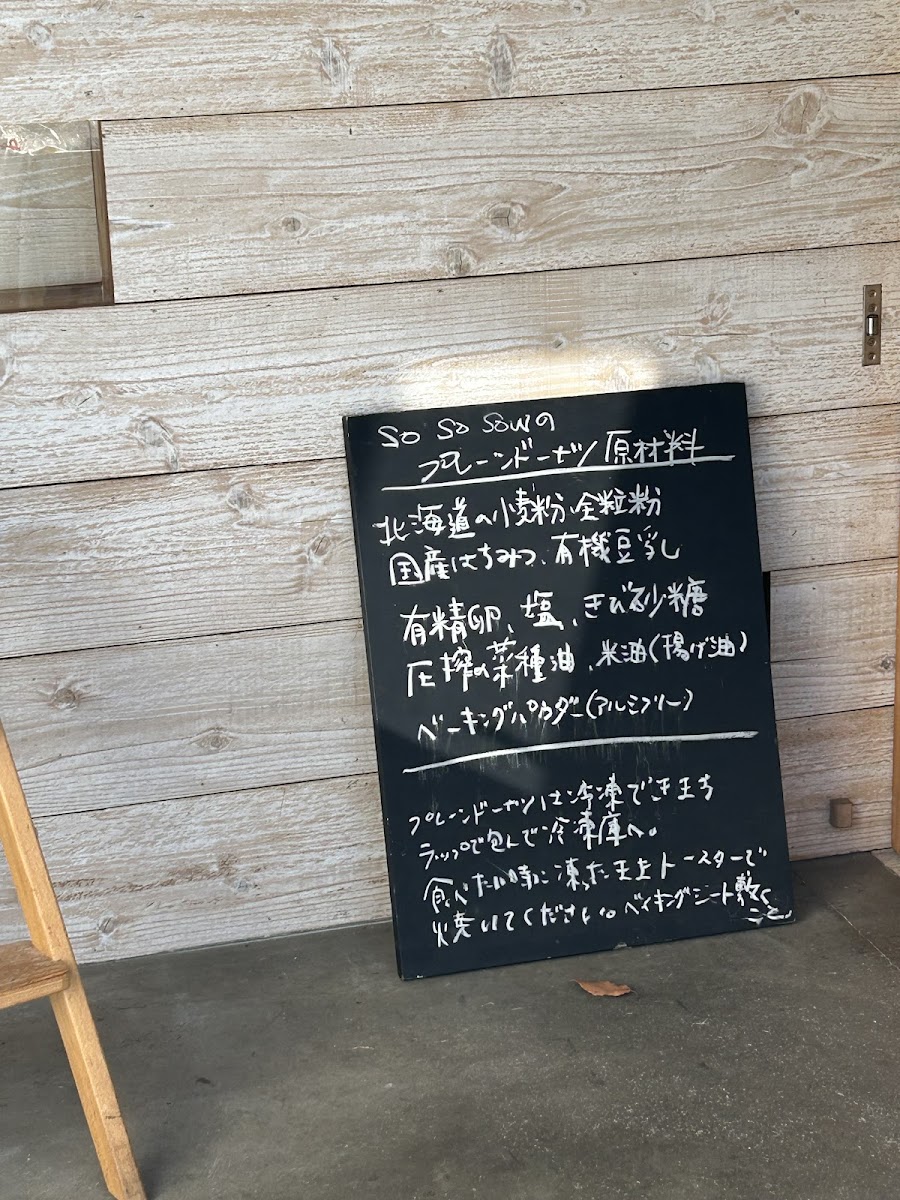 so so souの
プレーンドーナツ原材料
北海道の小麦粉、全粒粉
国産はちみつ、有機豆乳
有精卵、塩、きび砂糖
圧搾の菜種油、米油(揚げ油)
ベーキングパウダー(アルミフリー)
プレーンドーナツは冷凍できます
ラップで包んで冷凍庫へ。
食べたい時に凍ったままトースターで
焼いてください。ベイキングシート敷く
こと。